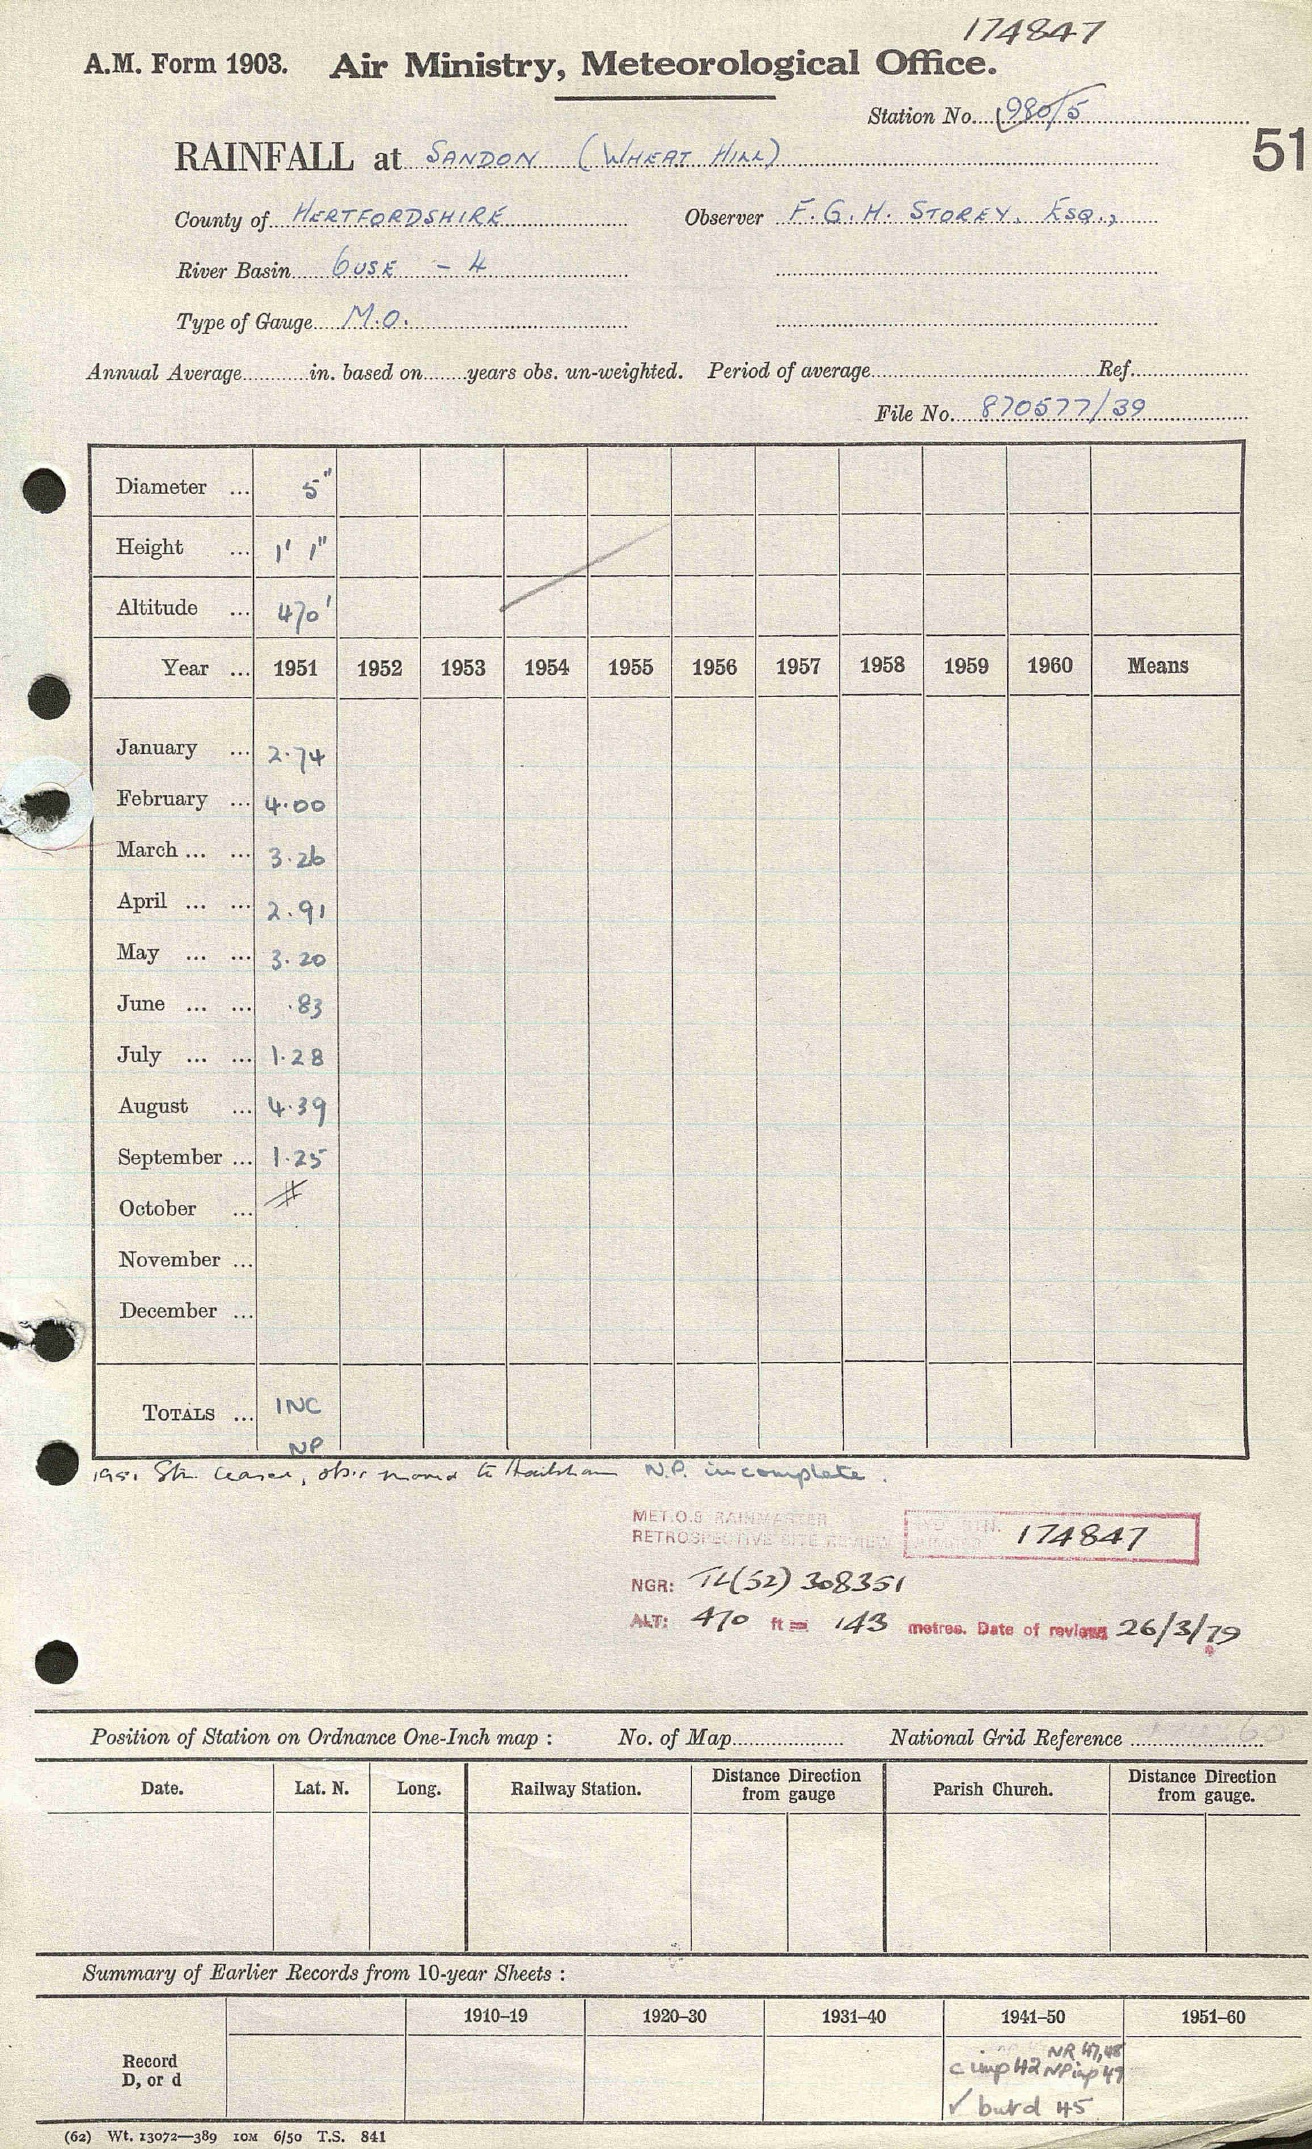 174847
A.M. Form 1903. Air Ministry, Meteorological Office.
Station No. 980/5
51
RAINFALL at SANDON (WHEAT HILL)
County of HERTFORDSHIRE Observer F. G. H. STOREY. ESQ.,
River Basin OUSE - 4
Type of Gauge M.O.
Annual Average in. based on years obs. un-weighted. Period of average Ref.
File No. 870577/39
Diameter ... 5"
Height ... 1' 1"
Altitude ... 470'
Year ... 1951 1952 1953 1954 1955 1956 1957 1958 1959 1960 Means
January ... 2.74
February ... 4.00
March ... ... 3.26
April ... ... 2.91
May ... ... 3.20
June ... ... .83
July ... ... 1.28
August ... 4.39
September ... 1.25
October ...
November ...
December ...
TOTALS ... INC
NP
1951 Stn. ceased, obsr moved to Hailsham N.P. incomplete.
MET.O.8 RAINMASTER
RETROSPECTIVE SITE REVIEW
STN. 174847
NGR: TL(52) 308351
ALT: 470 ft = 143 metres. Date of review 26/3/79
Position of Station on Ordnance One-Inch map : No. of Map National Grid Reference
Date. Lat. N. Long. Railway Station. Distance Direction from gauge Parish Church. Distance Direction from gauge.
Summary of Earlier Records from 10-year Sheets :
1910–19 1920–30 1931–40 1941–50 1951–60
Record
D, or d
NR 47,48
c imp 42 NP inp 49
✓ but d 45
(62) Wt. 13072—389 10M 6/50 T.S. 841